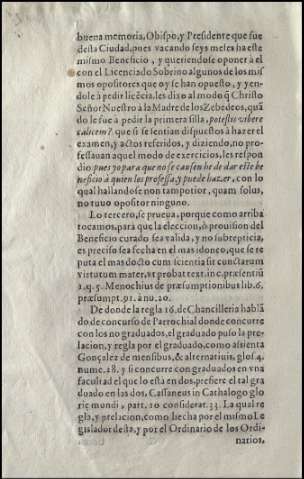 buena memoria, Obispo, y Presidente que fue
desta Ciudad, pues vacando seys meses ha este
mismo Beneficio, y queriendose oponer à el
con el Licenciado Sobrino algunos de los mis
mos opositores que oy se han opuesto, y yen-
dole à pedir licẽcia, les dixo al modo q̃ Christo
Señor Nuestro à la Madre de los Zebedeos, quã
do le fue à pedir la primera silla, potestis vibere
calicem? que si se sentian dispuestos à hazer el
examen, y actos referidos, y diziendo, no pro-
fessauan aquel modo de exercicios, les respon
dio pues yo para que no se causen he de dar este be
neficio à quien los professa, y puede hazer, con lo
qual hallandose non tampotior, quam solus,
no tuuo opositor ninguno.
Lo tercero, se prueua, porque como arriba
tocamos, para que la eleccion, ò prouision del
Beneficio curado sea valida, y no subrepticia,
es preciso sea fecha en el mas idoneo, que se re
puta el mas docto cum scientia sit cunctarum
virtutum mater, vt probat text. in c. præsentiũ
1. q. 5. Menochius de præsumptionibus lib. 6.
præsumpt. 91. ànu. 20.
De donde la regla 16. de Chancilleria hablã
do de concurso de Parrochial donde concurre
con los no graduados, el graduado puso la pre-
lacion, y regla por el graduado, como assienta
Gonçalez de mensibus, & alternatiuis, glos. 4.
nume. 28. y si concurre con graduados en vna
facultad el que lo està en dos, prefiere el tal gra
duado en las dos, Cassaneus in Cathalogo glo
rię mundi, part. 10 considerat. 33. La qual re
gla, y prelacion, como hecha por el mismo Le
gislador desta, y por el Ordinario de los Ordi-
narios,